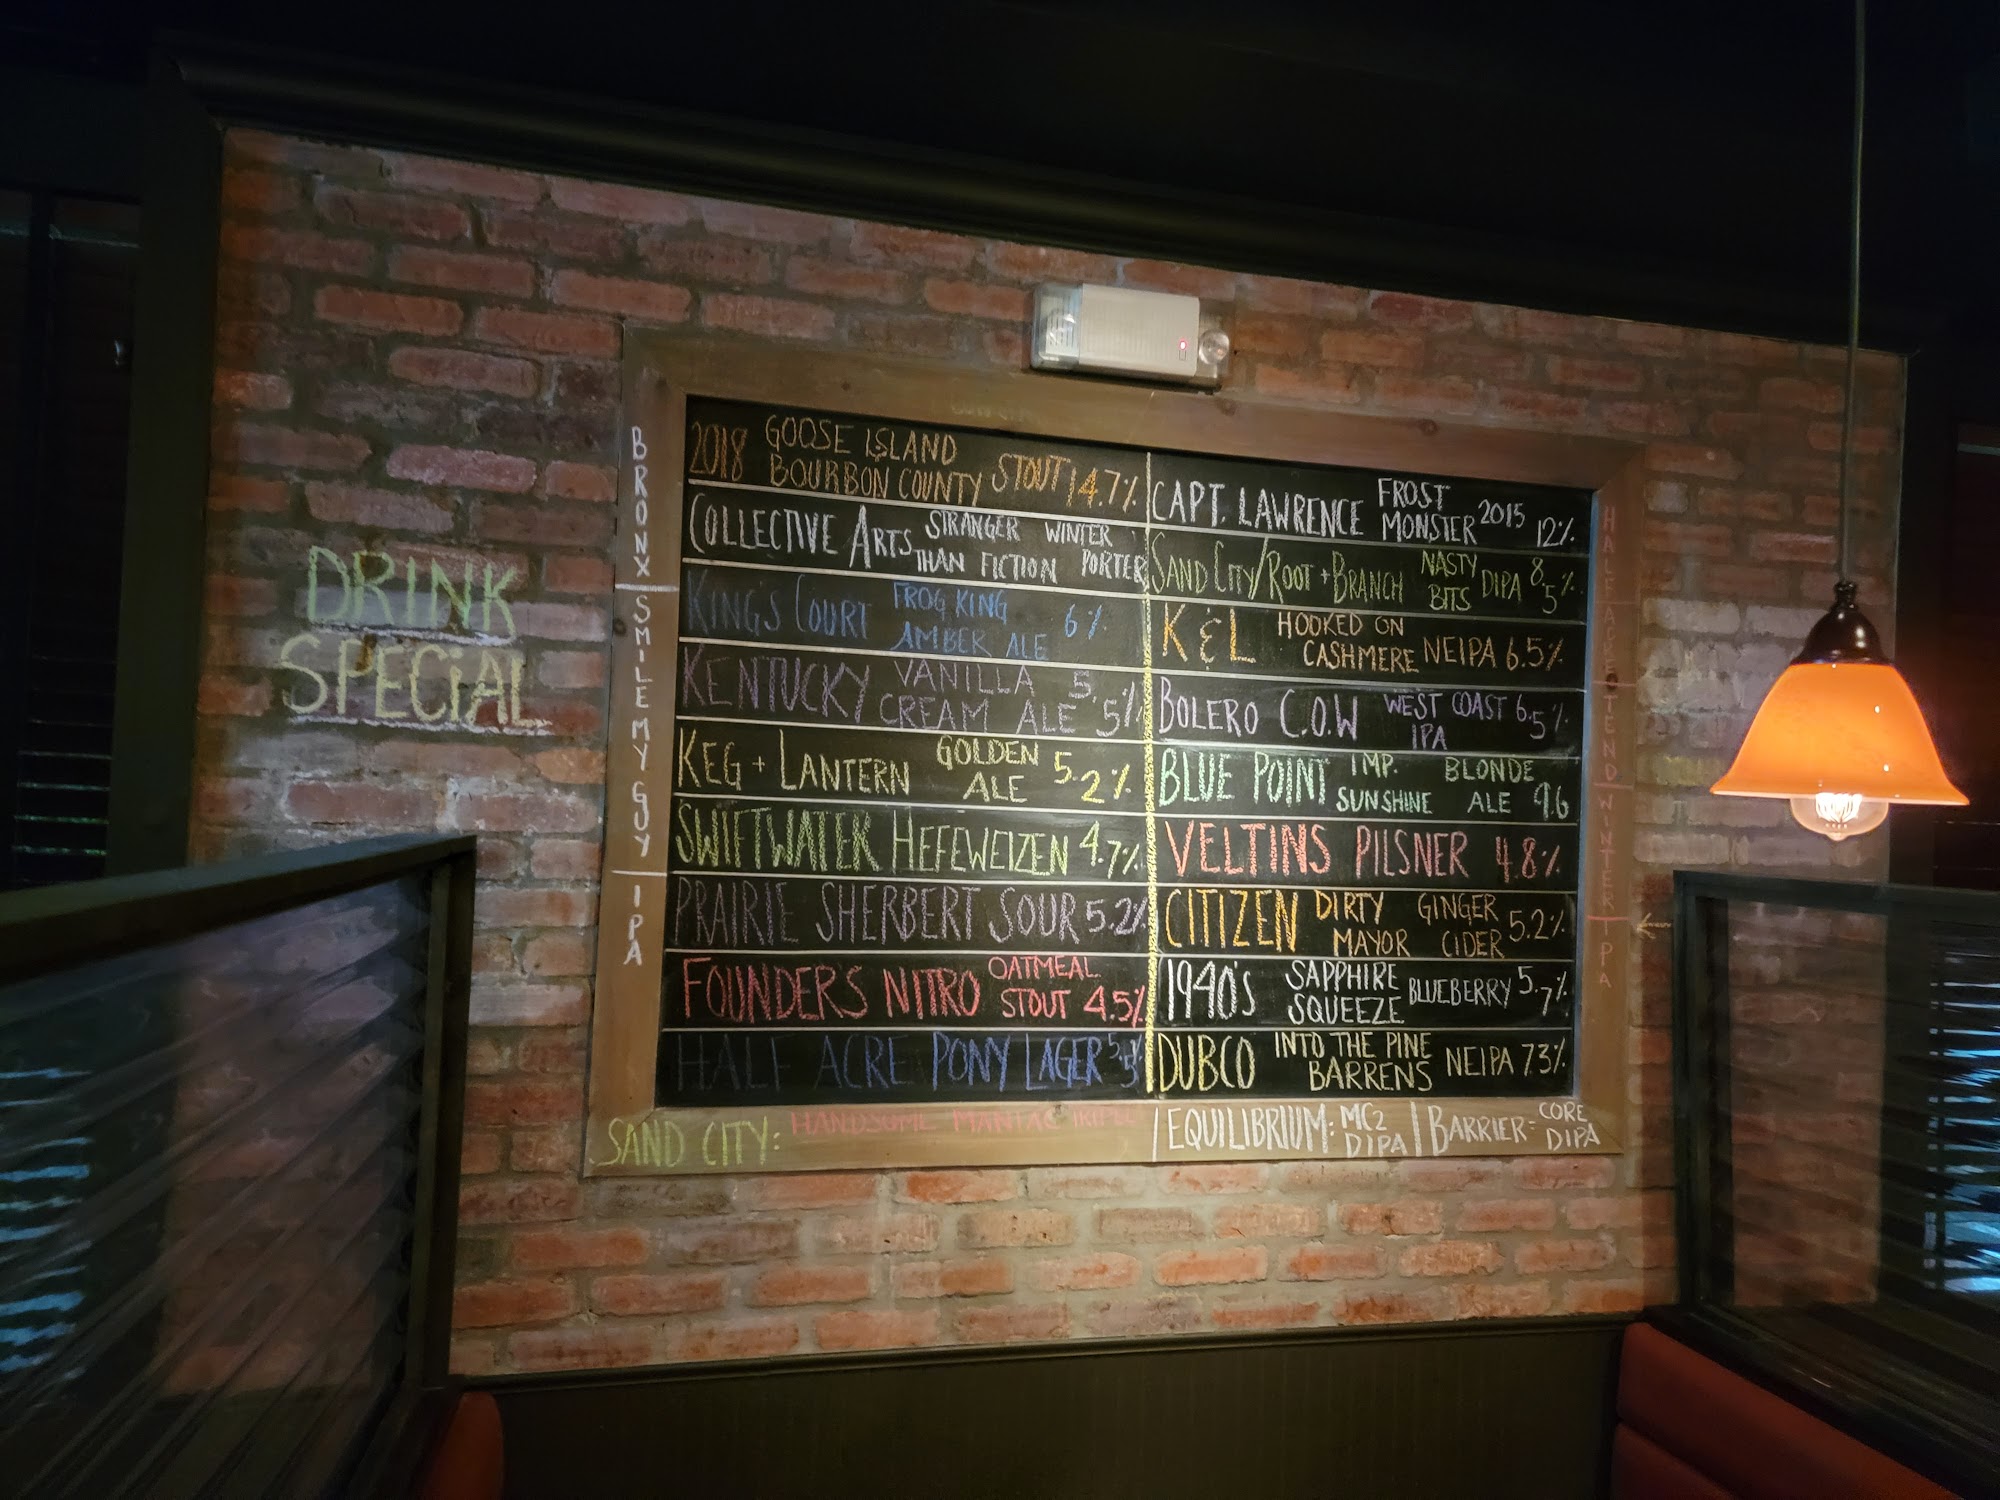 DRINK
SPECIAL
BRONX
SMILE MY GUY
IPA
2018 GOOSE ISLAND BOURBON COUNTY STOUT 14.7%
COLLECTIVE ARTS STRANGER THAN FICTION WINTER PORTER
KING'S COURT FROG KING AMBER ALE 6%
KENTUCKY VANILLA CREAM ALE 5.5%
KEG + LANTERN GOLDEN ALE 5.2%
SWIFTWATER HEFEWEIZEN 4.7%
PRAIRIE SHERBERT SOUR 5.2%
FOUNDERS NITRO OATMEAL STOUT 4.5%
HALF ACRE PONY LAGER
CAPT. LAWRENCE FROST MONSTER 2015 12%
SAND CITY/ROOT + BRANCH NASTY BITS DIPA 8.5%
K & L HOOKED ON CASHMERE NEIPA 6.5%
BOLERO C.O.W WEST COAST IPA 6.5%
BLUE POINT IMP. SUNSHINE BLONDE ALE 9.6
VELTINS PILSNER 4.8%
CITIZEN DIRTY MAYOR GINGER CIDER 5.2%
1940'S SAPPHIRE SQUEEZE BLUEBERRY 5.7%
DUBCO INTO THE PINE BARRENS NEIPA 7.3%
HALF ACRE
WINTER
IPA
SAND CITY: HANDSOME MANIAC
EQUILIBRIUM: MC2 DIPA | BARRIER- CORE DIPA